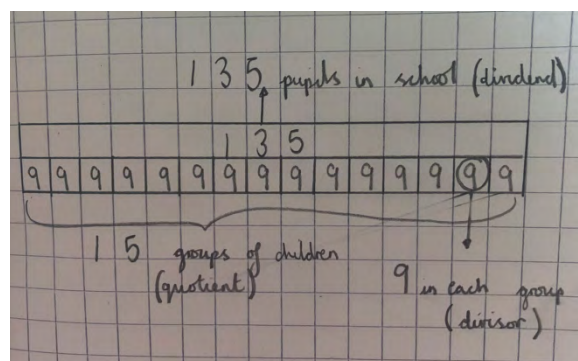 135 pupils in school (dividend)
135
9 9 9 9 9 9 9 9 9 9 9 9 9 9 9
15 groups of children
(quotient)
9 in each group
(divisor)